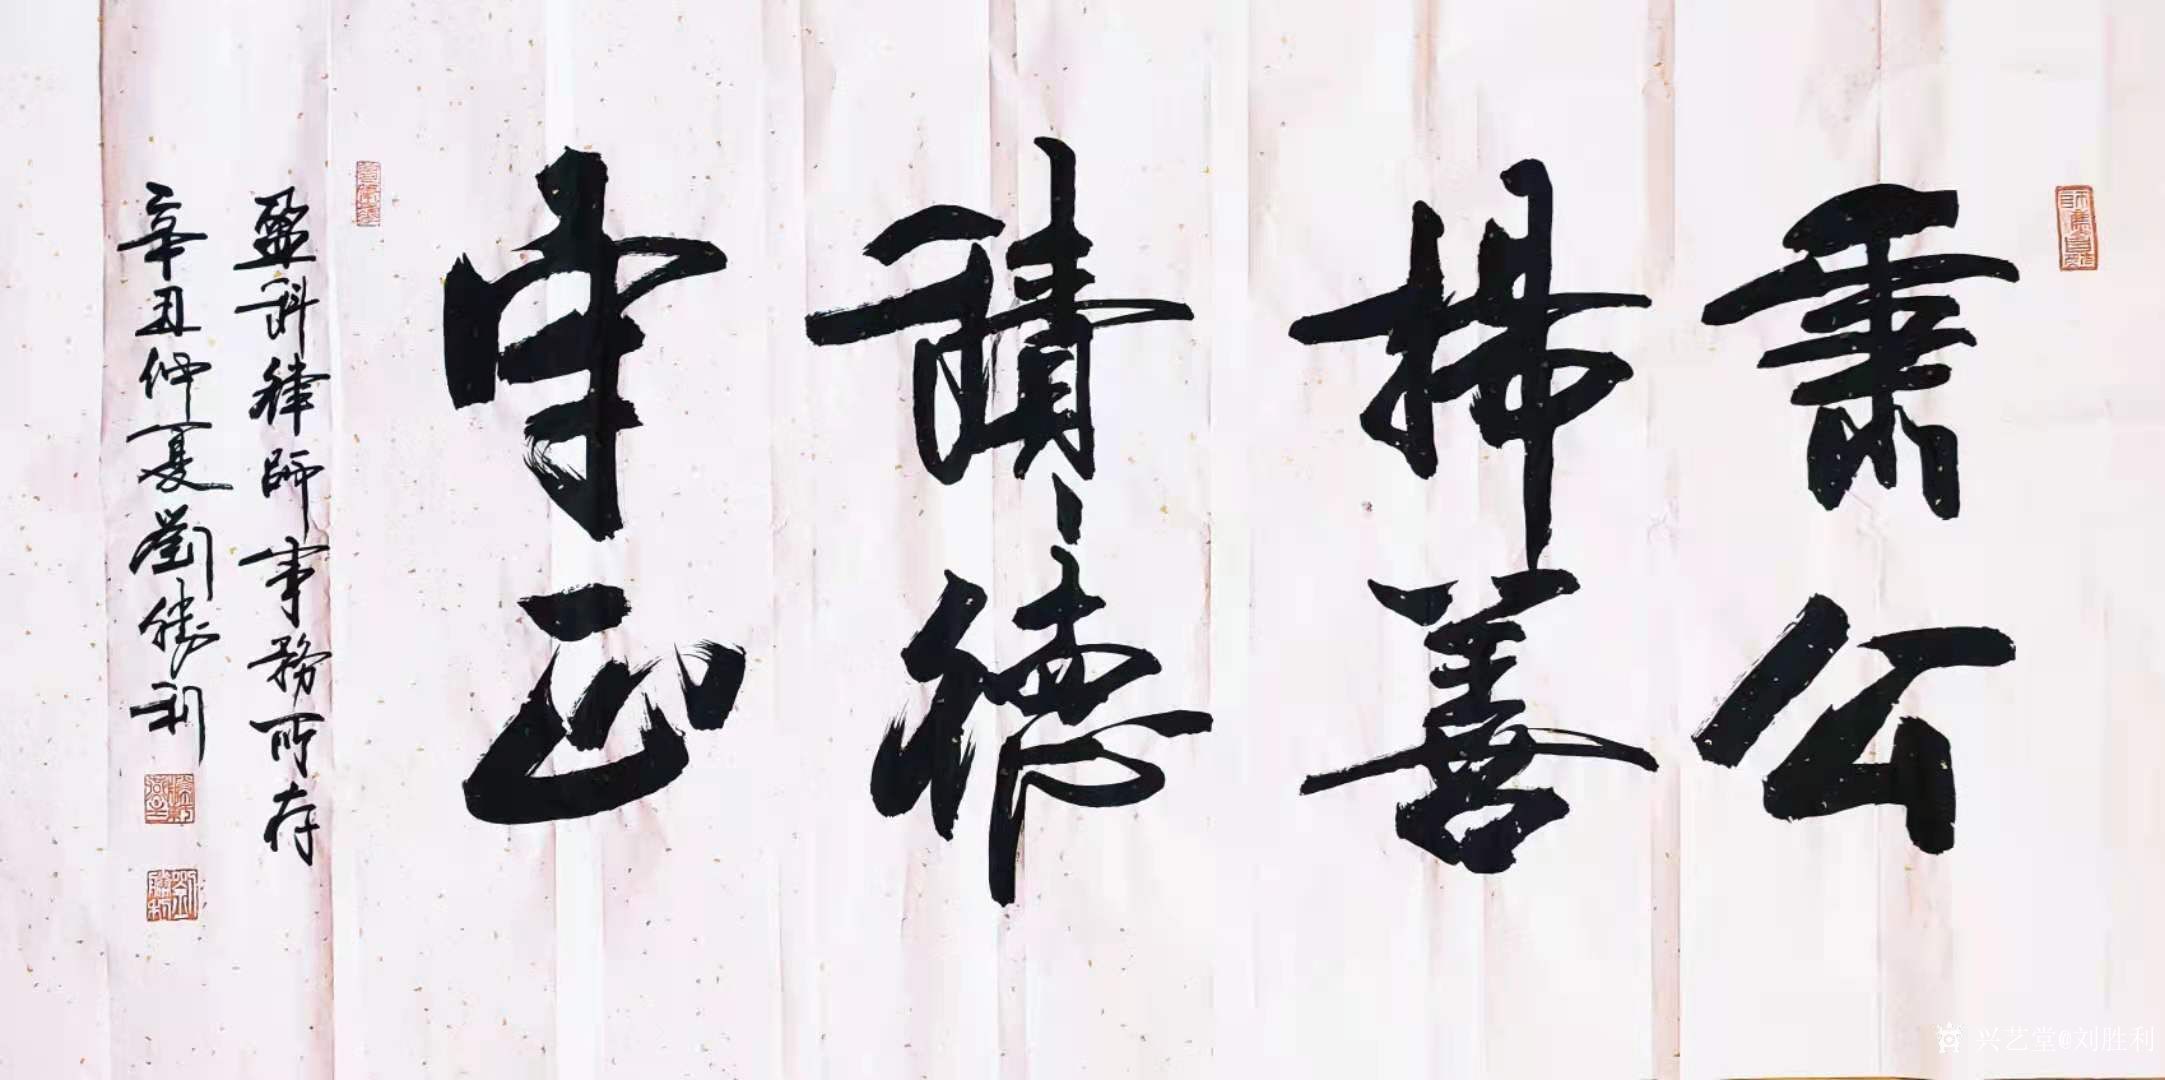 秉公
揚善
積德
守正
盈科律師事務所存
辛丑仲夏劉勝利
兴艺堂@刘胜利